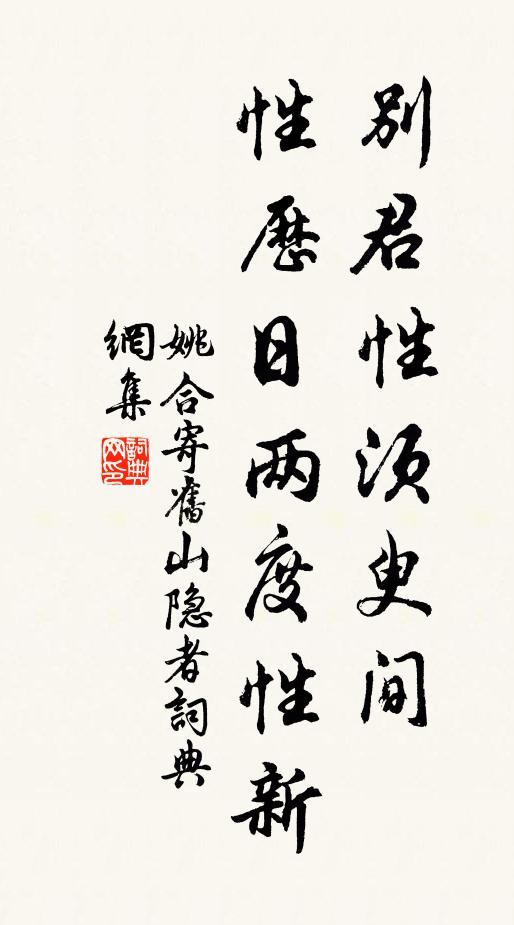 别君性须臾间
性历日两度性新
姚合寄旧山隐者詞典
網集
詞典网印